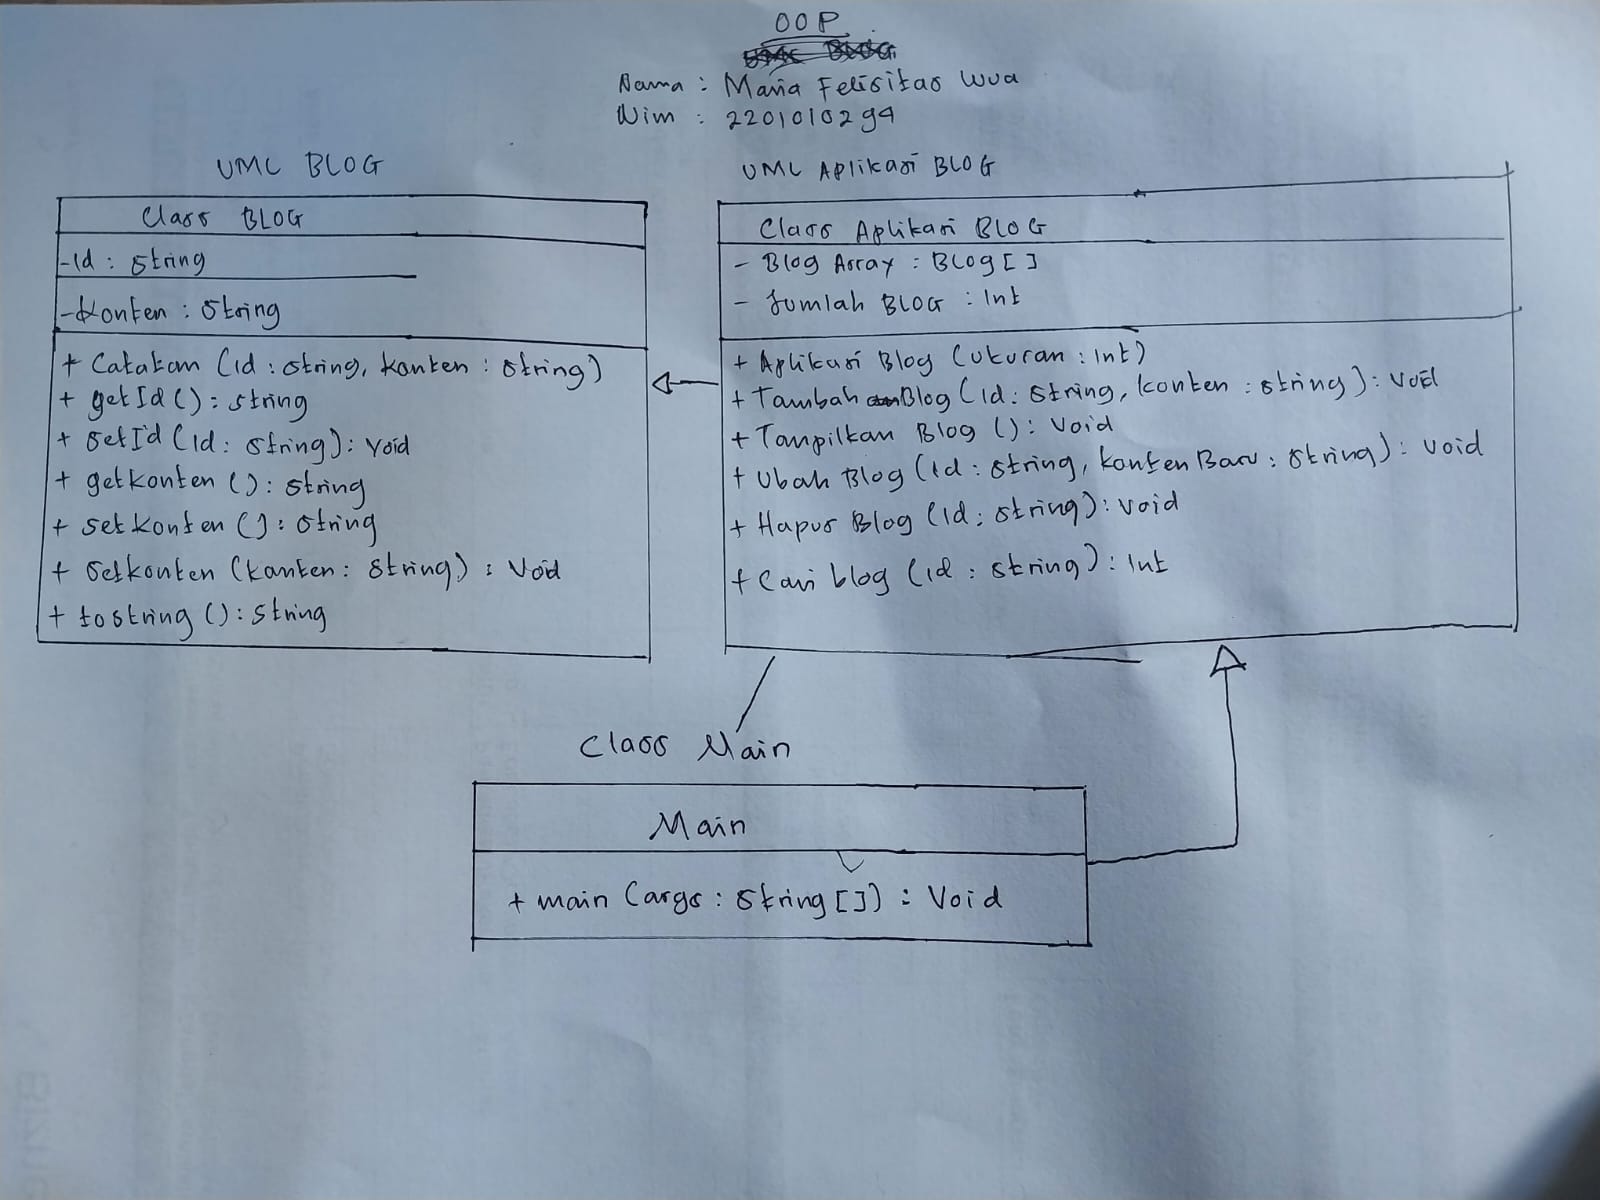 OOP
Nama : Maria Felisitas Wua
Nim : 2201010294
UML BLOG
Class BLOG
- Id : String
- Konten : String
+ Catatan (Id : String, konten : String)
+ getId () : String
+ SetId (Id : String) : Void
+ getkonten () : String
+ setkonten () : String
+ Setkonten (kanten : String) : Void
+ tostring () : String
UML Aplikasi BLOG
Class Aplikasi BLOG
- Blog Array : BLOG [ ]
- Jumlah BLOG : Int
+ Aplikasi Blog (ukuran : Int)
+ Tambah Blog (Id : String, konten : String) : Void
+ Tampilkan Blog () : Void
+ Ubah Blog (Id : String, konten Baru : String) : Void
+ Hapus Blog (Id : String) : Void
+ Cari blog (id : String) : Int
Class Main
Main
+ main (args : String [ ]) : Void